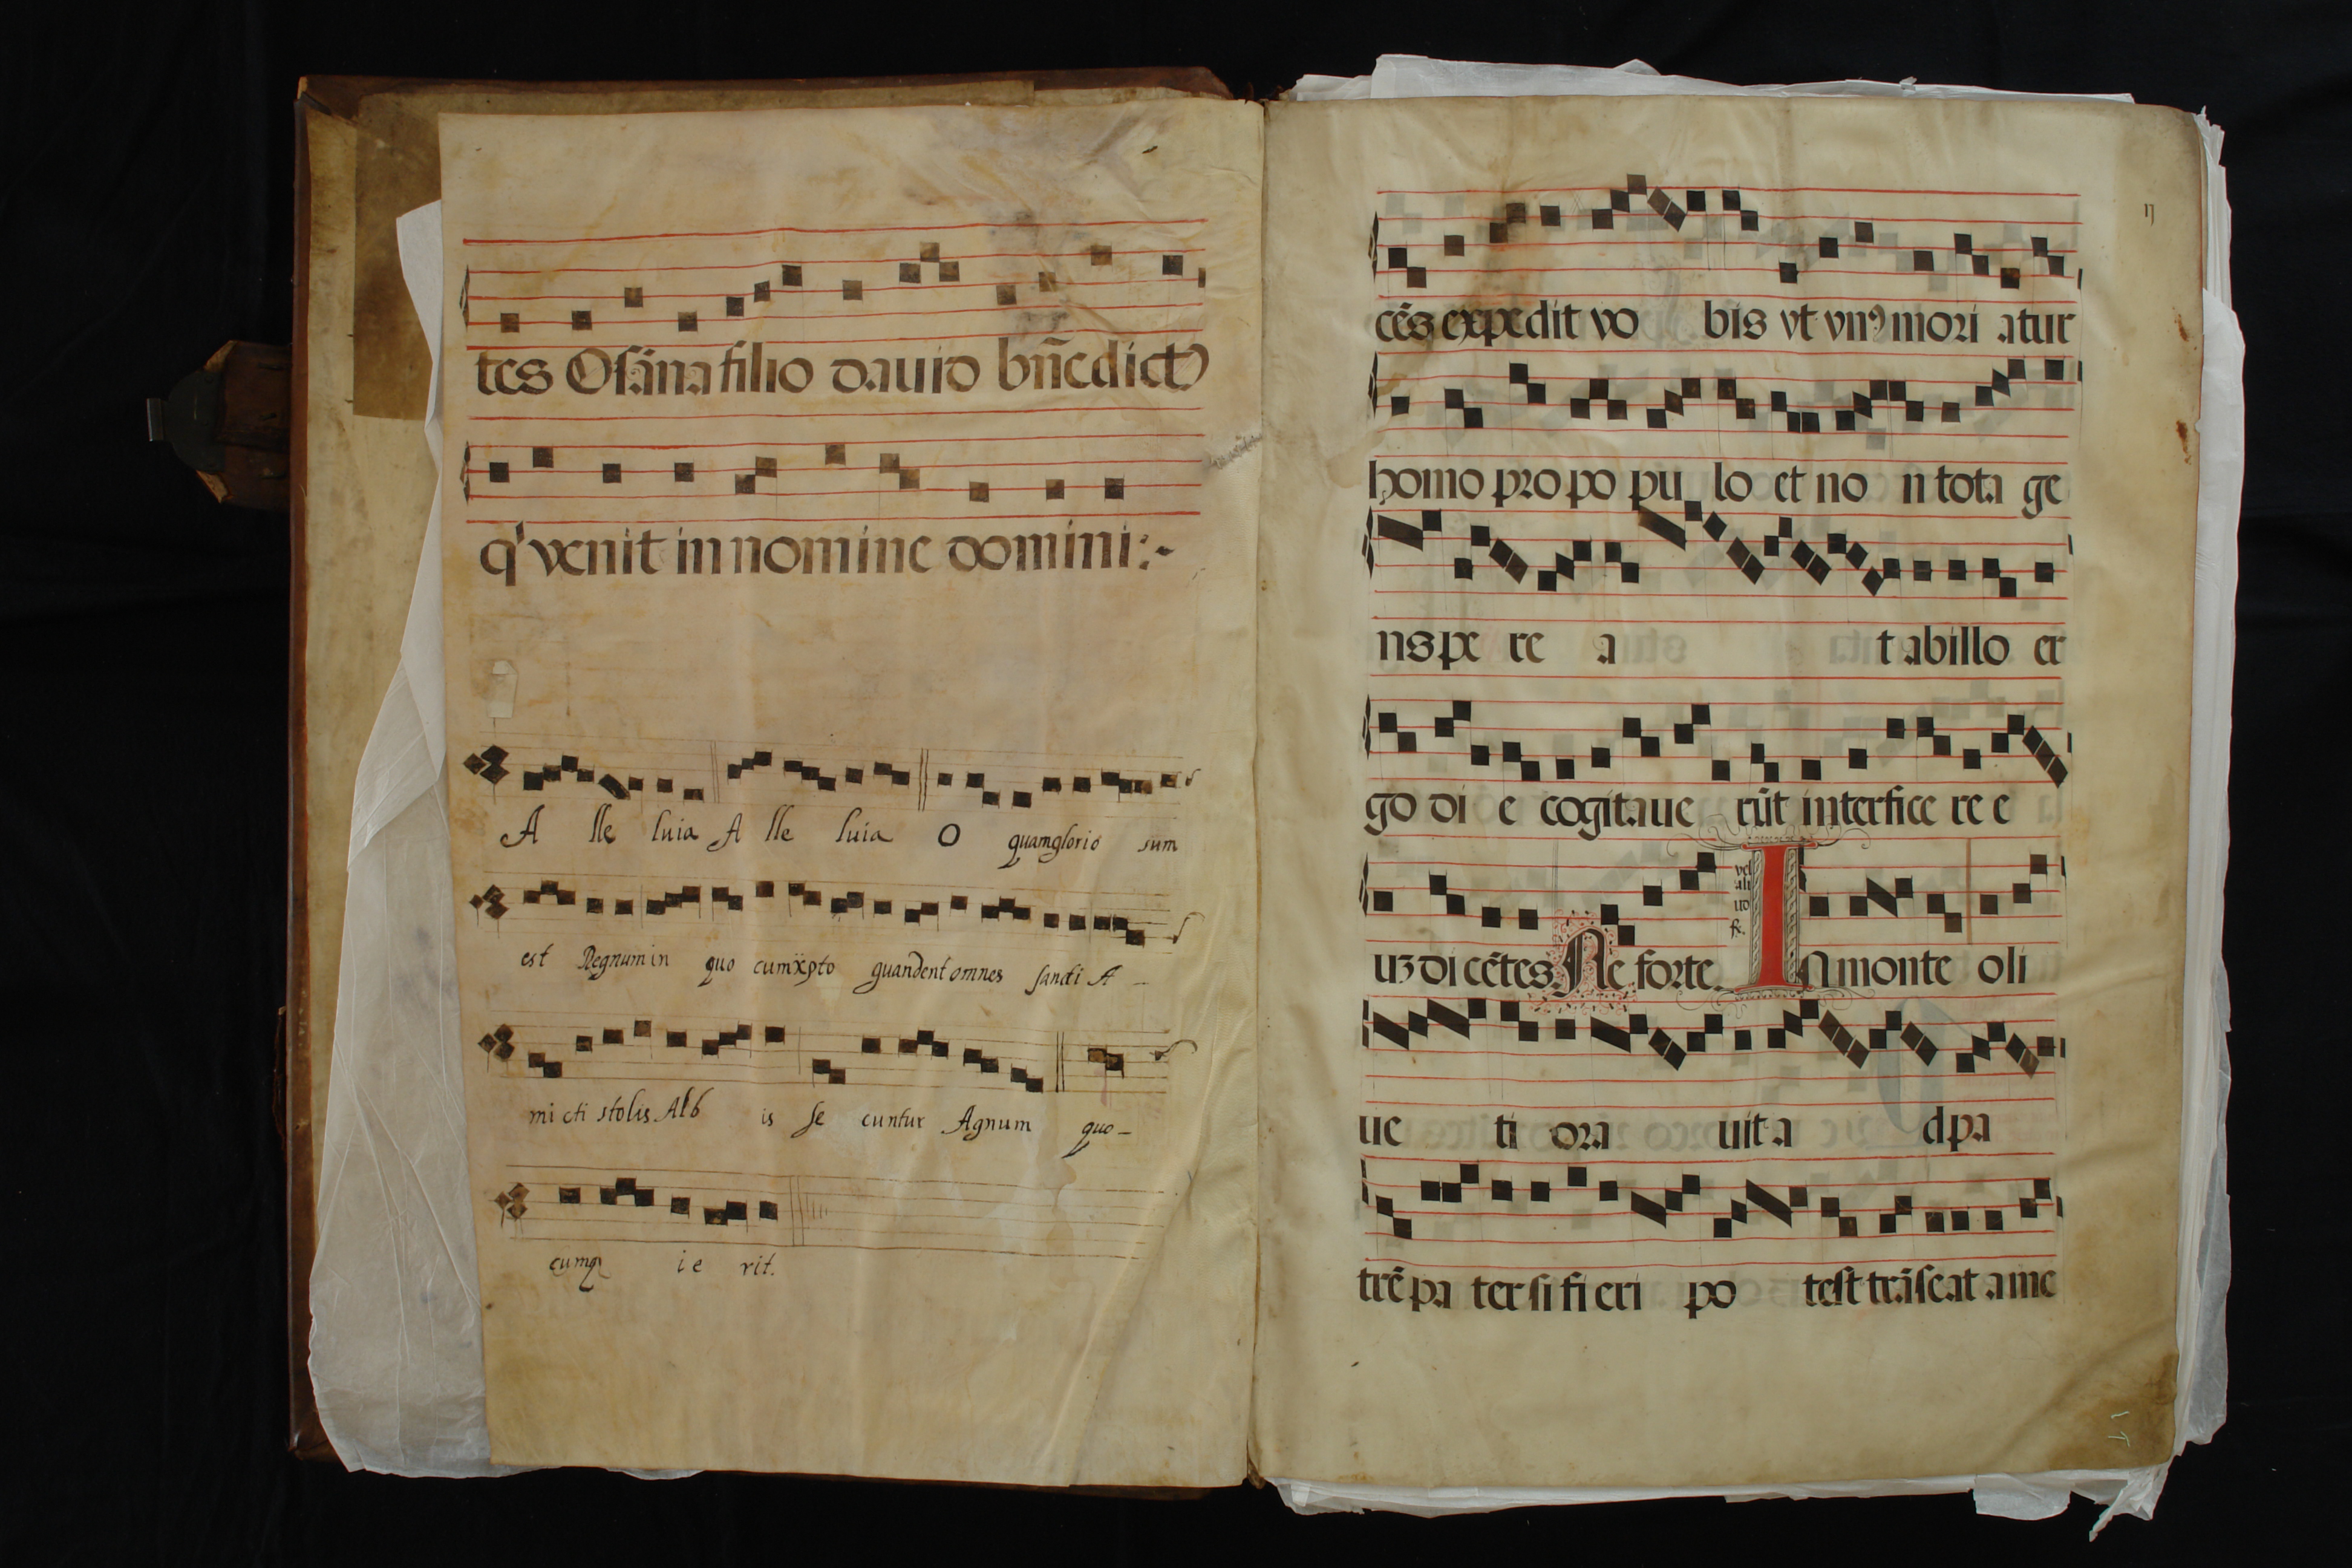 tes Osãna filio dauid bñedictꝰ
qͥ venit in nomine domini:~
A lle luia A lle luia O quamglorio sum
est Regnum in quo cum xp̃to guandent omnes sancti A -
mi cti stolis Alb is se cuntur Agnum quo-
cumqȝ ie rit.
17
cẽs expedit vo bis vt vnꝰ mori atur
homo pro po pu lo et no n tota ge
ns pe re a t ab illo er
go di e cogitaue rũt interfice re e
vel
ali
uo
uȝ di cẽtes Ne forte In monte oli
ue ti ora uit a d pa
trẽ pa ter si fi eri po test trãseat a me